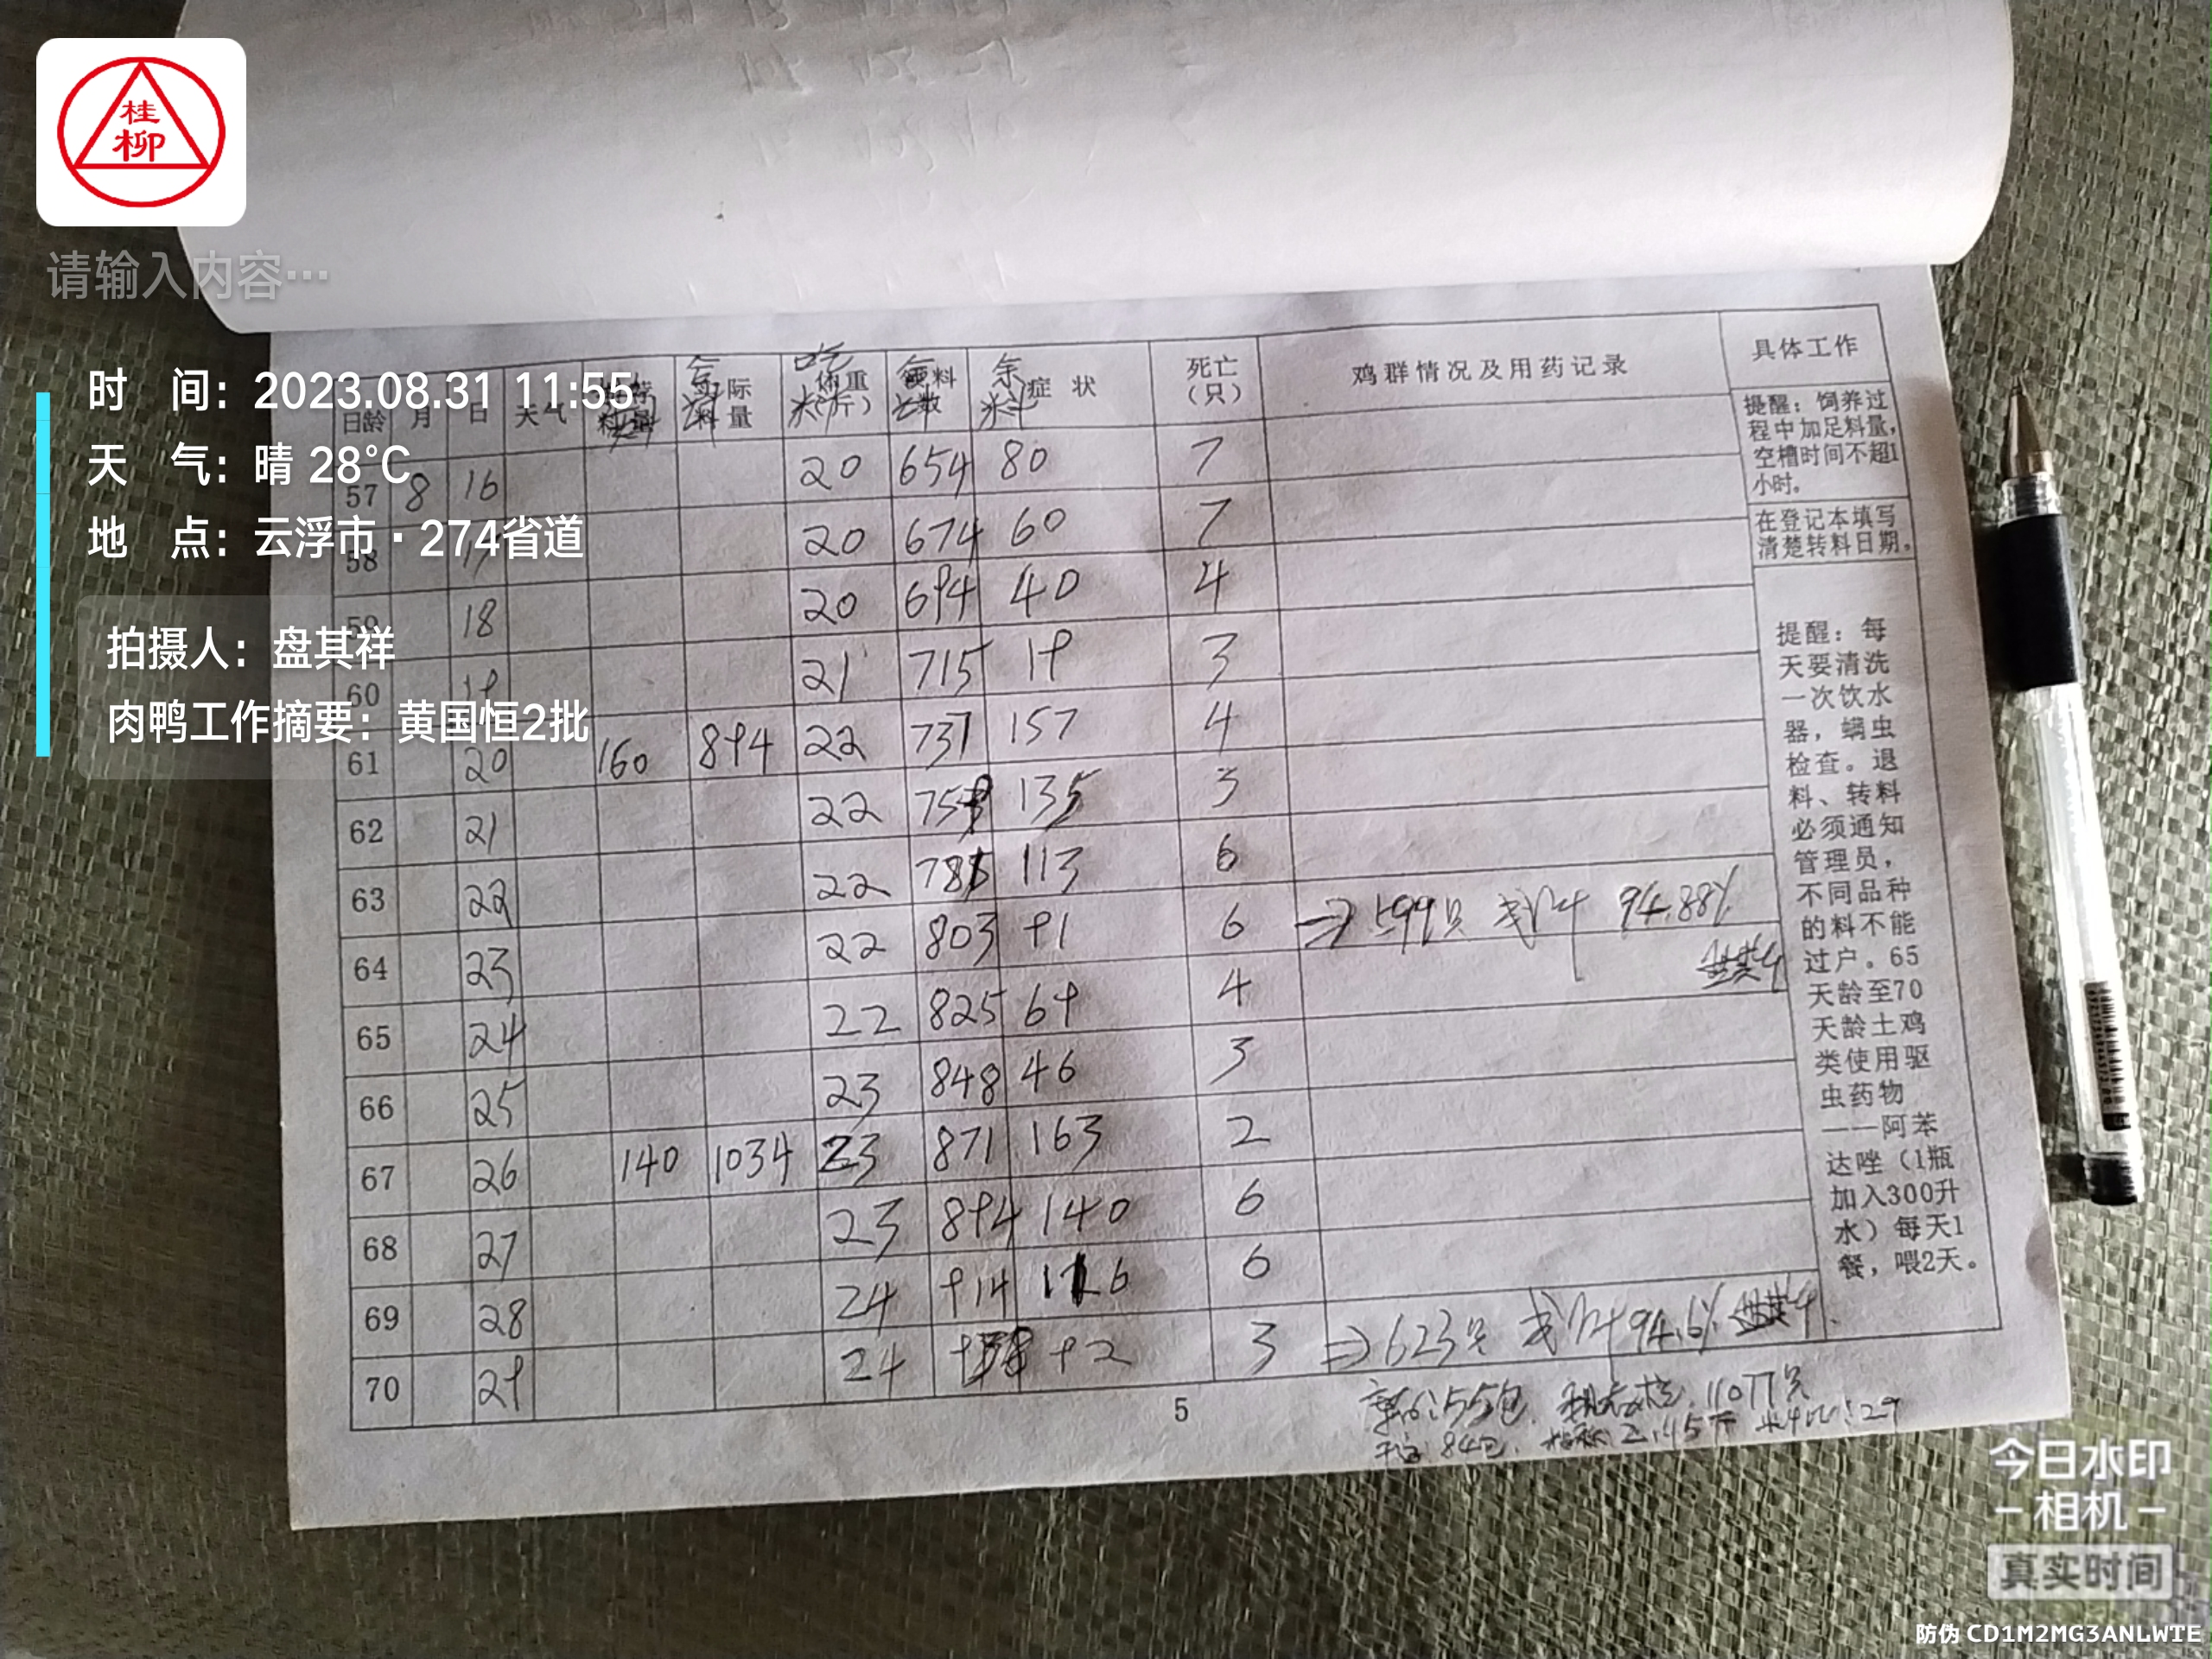 桂
柳
请输入内容…
时 间：2023.08.31 11:55
天 气：晴 28°C
地 点：云浮市·274省道
拍摄人：盘其祥
肉鸭工作摘要：黄国恒2批
日龄 月 日 天气 料量 实际料量 体重（斤） 吃 领料 数 余料 症状 死亡（只） 鸡群情况及用药记录 具体工作
57 8 16 20 654 80 7
58 17 20 674 60 7
59 18 20 694 40 4
60 19 21 715 19 3
61 20 160 894 22 737 157 4
62 21 22 759 135 3
63 22 22 781 113 6
64 23 22 803 91 6 ⇒599只 94.88%
65 24 22 825 69 4
66 25 23 848 46 3
67 26 140 1034 23 871 163 2
68 27 23 894 140 6
69 28 24 914 116 6
70 29 24 92 3 ⇒623只 94.6%
提醒：饲养过
程中加足料量，
空槽时间不超1
小时。
在登记本填写
清楚转料日期。
提醒：每
天要清洗
一次饮水
器，螨虫
检查。退
料、转料
必须通知
管理员，
不同品种
的料不能
过户。65
天龄至70
天龄土鸡
类使用驱
虫药物
——阿苯
达唑（1瓶
加入300升
水）每天1
餐，喂2天。
55包 11077只
84包 2.45斤
5
今日水印
相机
真实时间
防伪 CD1M2MG3ANLWTE